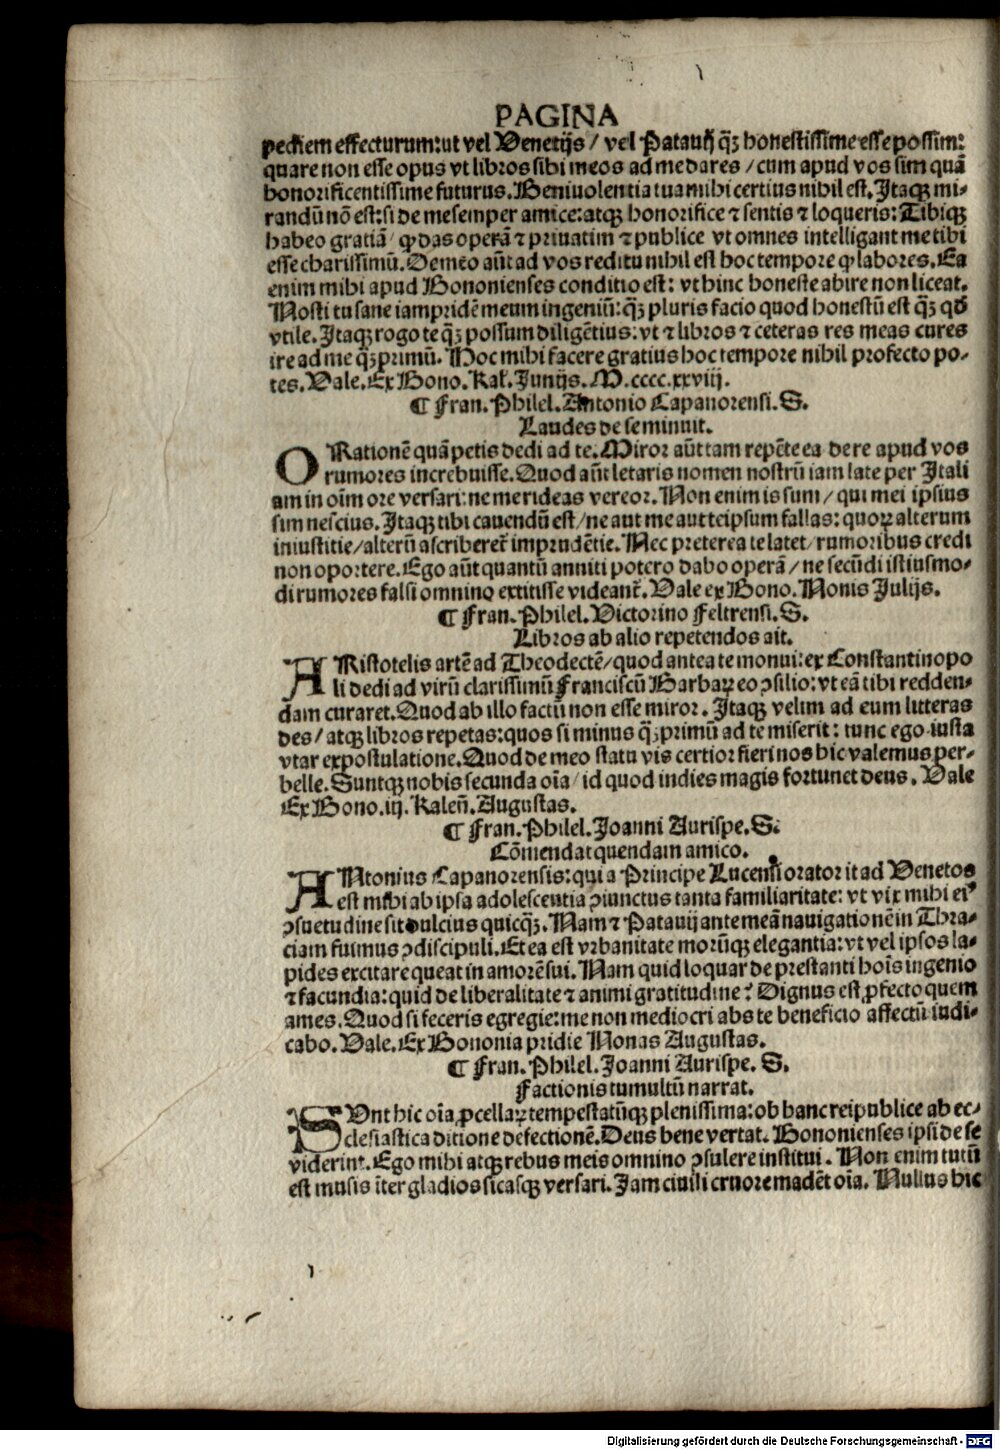 PAGINA
pediem effecturum: ut vel Venetijs / vel Patauij q̃ꝫ honestissime esse possim:
quare non esse opus vt libros sibi meos ad me dares / cum apud vos sim quã
honorificentissime futurus. Beniuolentia tua mihi certius nihil est. Itaqꝫ mi-
randũ nõ est: si de me semper amice: atqꝫ honorifice ⁊ sentis ⁊ loqueris: Tibiqꝫ
habeo gratiã / ꝙ das operã ⁊ priuatim ⁊ publice vt omnes intelligant me tibi
esse charissimũ. De meo aũt ad vos reditu nihil est hoc tempore ꝙ labores. Ea
enim mihi apud Bononienses conditio est: vt hinc honeste abire non liceat.
Nosti tu sane iampridẽ meum ingeniũ: q̃ꝫ pluris facio quod honestũ est q̃ꝫ qđ
vtile. Itaqꝫ rogo te q̃ꝫ possum diligẽtius: vt ⁊ libros ⁊ ceteras res meas cures
ire ad me q̃ꝫprimũ. Hoc mihi facere gratius hoc tempore nihil profecto po-
tes. Vale. Ex Bono. Kal. Junijs. M.cccc.xxviij.
¶ Fran. Philel. Antonio Capanorensi. S.
Laudes de se minuit.
ORationẽ quã petis dedi ad te. Miror aũt tam repẽte ea de re apud vos
rumores increbuisse. Quod aũt letaris nomen nostrũ iam late per Itali
am in oĩm ore versari: ne me rideas vereor. Non enim is sum / qui mei ipsius
sim nescius. Itaqꝫ tibi cauendũ est / ne aut me aut teipsum fallas: quoꝝ alterum
iniustitie / alterũ ascriberet̃ imprudẽtie. Nec preterea te latet / rumoribus credi
non oportere. Ego aũt quantũ anniti potero dabo operã / ne secũdi istiusmo-
di rumores falsi omnino extitisse videant̃. Vale ex Bono. Nonis Julijs.
¶ Fran. Philel. Victorino Feltrensi. S.
Libros ab alio repetendos ait.
ARistotelis artẽ ad Theodectẽ / quod antea te monui: ex Constantinopo
li dedi ad virũ clarissimũ Franciscũ Barbaꝝ eo ꝯsilio: vt eã tibi redden-
dam curaret. Quod ab illo factũ non esse miror. Itaqꝫ velim ad eum litteras
des / atqꝫ libros repetas: quos si minus q̃ꝫprimũ ad te miserit: tunc ego iusta
vtar expostulatione. Quod de meo statu vis certior fieri nos hic valemus per-
belle. Suntqꝫ nobis secunda oĩa / id quod indies magis fortunet deus. Vale
Ex Bono. iij. Kaleñ. Augustas.
¶ Fran. Philel. Joanni Aurispe. S.
Cõmendat quendam amico.
ANtonius Capanorensis: qui a Principe Lucensi orator it ad Venetos
est mihi ab ipsa adolescentia ꝯiunctus tanta familiaritate: vt vix mihi ei⁹
ꝯsuetudine sit dulcius quicq̃ꝫ. Nam ⁊ Patauij ante meã nauigationẽ in Thra-
ciam fuimus ꝯdiscipuli. Et ea est vrbanitate morũqꝫ elegantia: vt vel ipsos la-
pides excitare queat in amorẽ sui. Nam quid loquar de prestanti hoĩs ingenio
⁊ facundia: quid de liberalitate ⁊ animi gratitudine? Dignus est ꝓfecto quem
ames. Quod si feceris egregie: me non mediocri abs te beneficio affectũ iudi-
cabo. Vale. Ex Bononia pridie Nonas Augustas.
¶ Fran. Philel. Joanni Aurispe. S.
Factionis tumultũ narrat.
SVnt hic oĩa ꝓcellaꝝ tempestatũqꝫ plenissima: ob hanc reipublice ab ec-
clesiastica ditione defectionẽ. Deus bene vertat. Bononienses ipsi de se
viderint. Ego mihi atqꝫ rebus meis omnino ꝯsulere institui. Non enim tutũ
est musis iter gladios sicasqꝫ versari. Iam ciuili cruore madẽt oĩa. Nullus hic
Digitalisierung gefördert durch die Deutsche Forschungsgemeinschaft - DFG